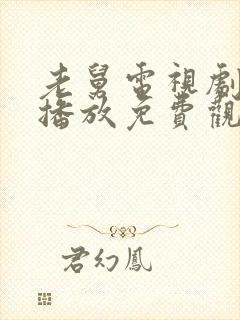 老舅電視劇
播放免費觀
君幻鳳